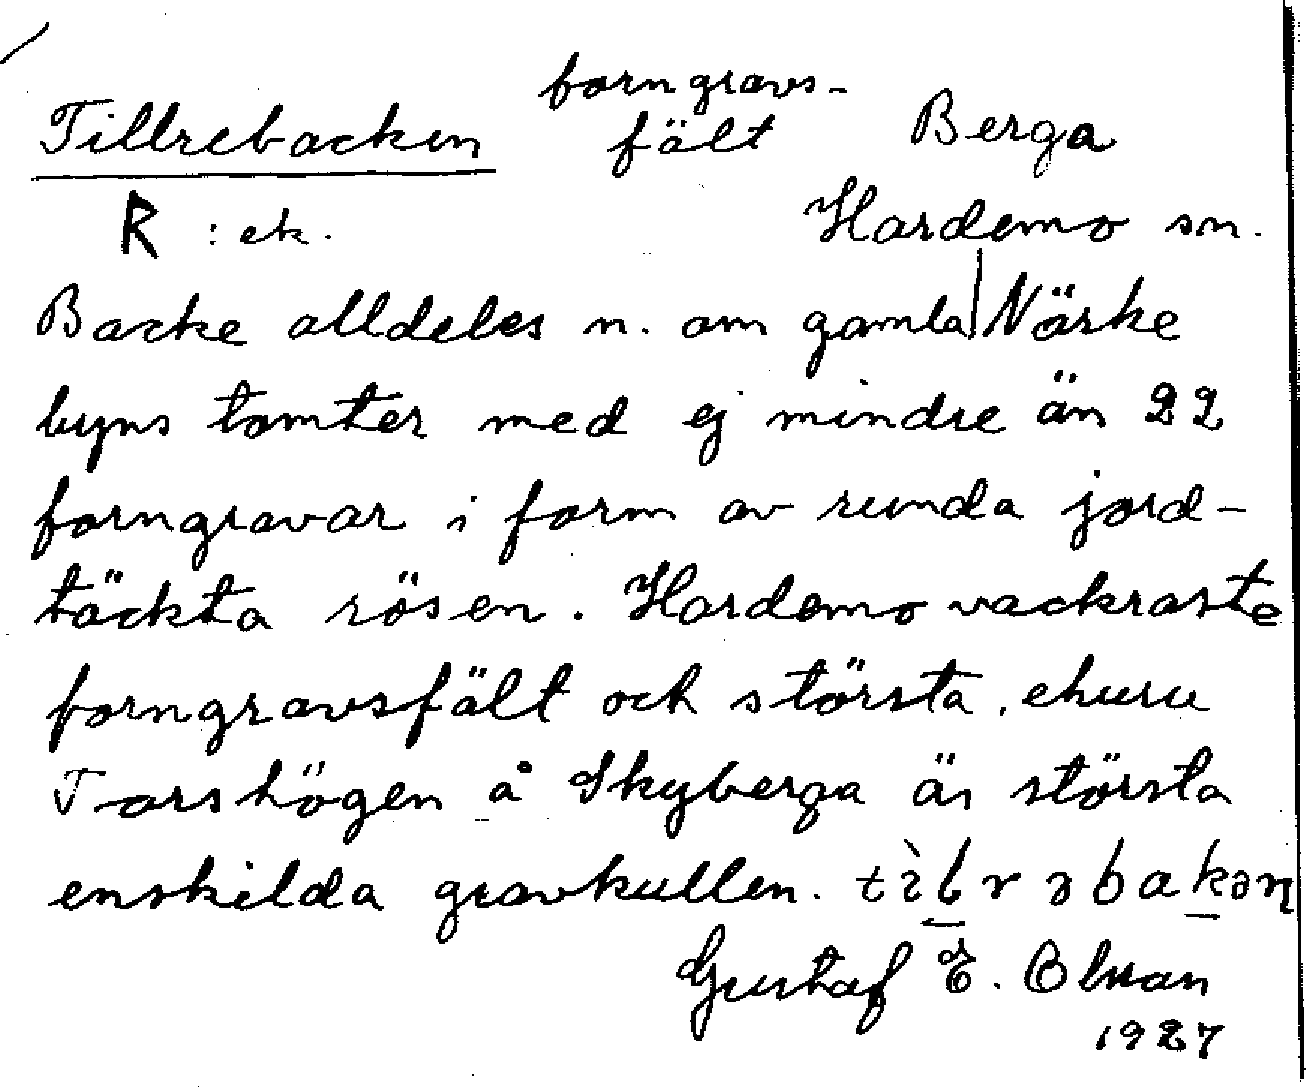 Tillrebacken forngravs-
fält Berga
R : ek. Hardemo sn.
Närke
Backe alldeles n. om gamla
byns tomter med ej mindre än 22
forngravar i form av runda jord-
täckta rösen. Hardemo vackraste
forngravsfält och största, ehuru
Torshögen å Skyberga är största
enskilda gravkullen.
Gustaf E.
1927